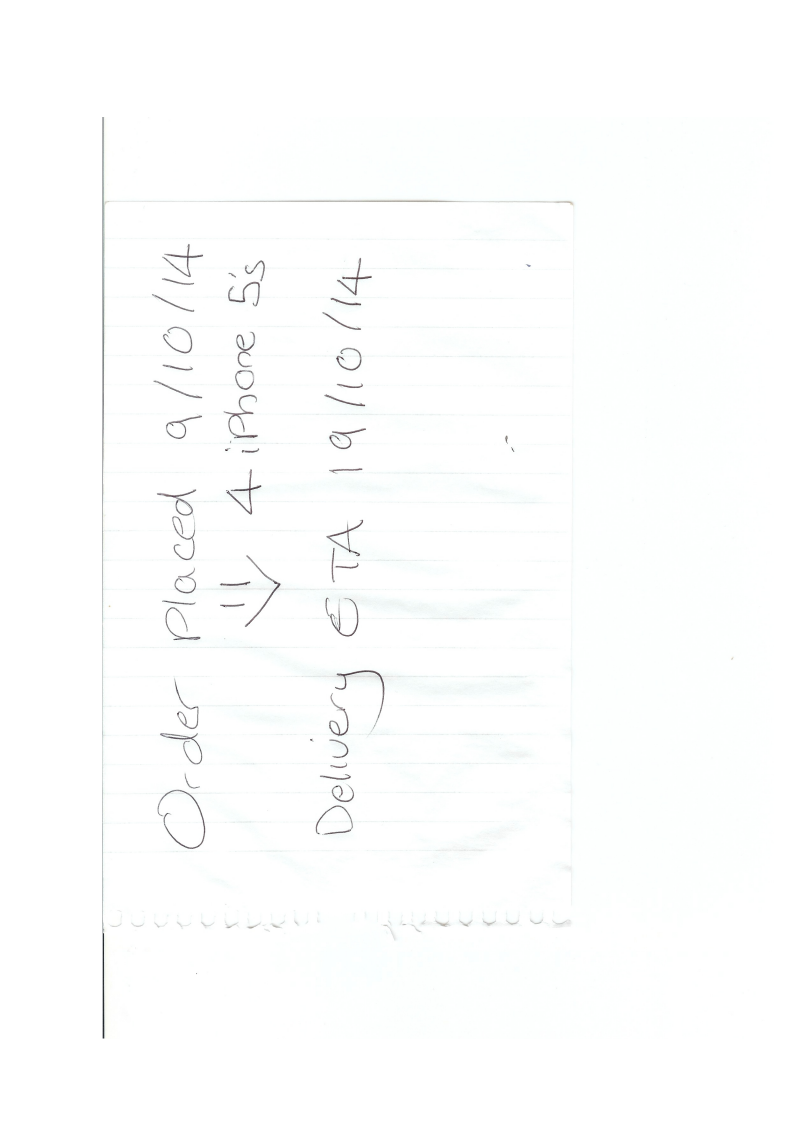 Order Placed 9/10/14
" > 4 iPhone 5's
Delivery ETA 19/10/14